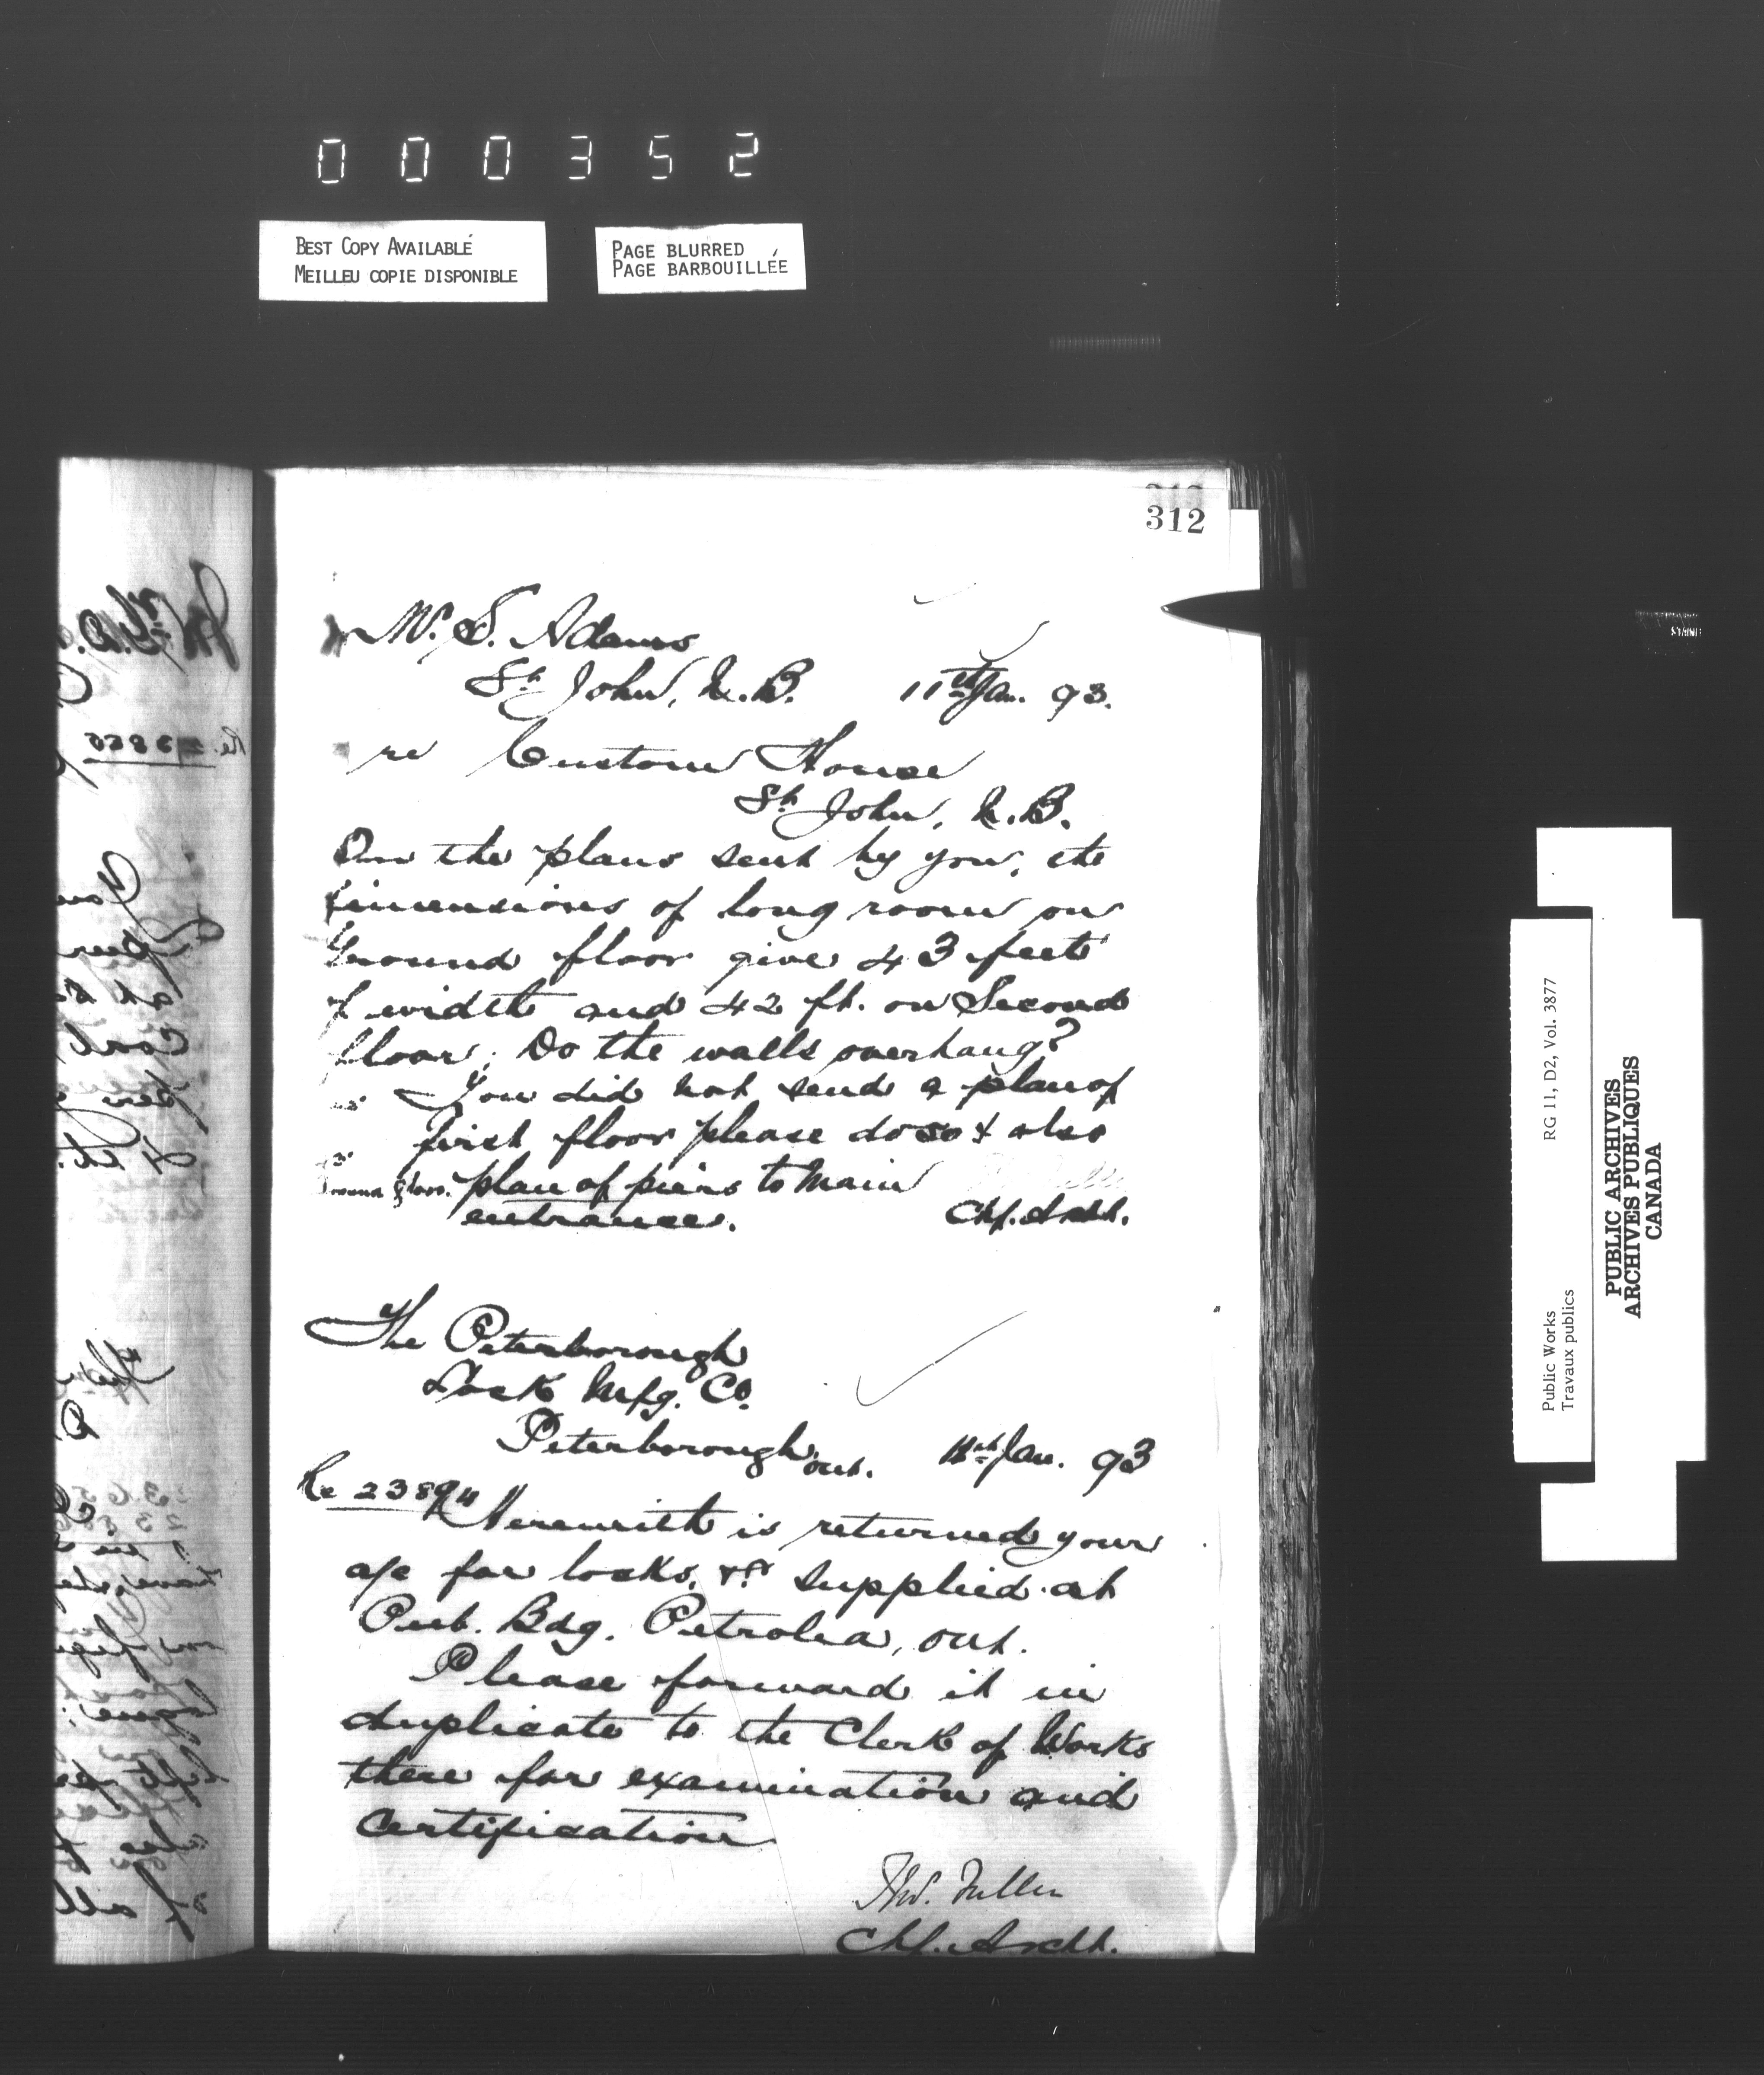 000352
BEST COPY AVAILABLÉ
MEILLEU COPIE DISPONIBLE
PAGE BLURRED
PAGE BARBOUILLÉE
312
W. S. Adams
St. John, N.B. 11th Jan. 93.
re Custom House
St. John, N.B.
On the plans sent by you, the
dimensions of long room on
Ground floor give 43 feet
of width and 42 ft. on Second
floor; Do the walls overhang?
You did not send a plan of
first floor please do so & also
plan of piers to Main
entrance.
Chf. Archt.
The Peterborough
Lock Mfg. Co.
Peterborough, Ont. 11th Jan. 93
Re 23894
Herewith is returned your
a/c for locks, &c supplied at
Pub. Bdg. Petrolea, Ont.
Please forward it in
duplicate to the Clerk of Works
there for examination and
Certification
Thos. Fuller
Chf. Archt.
Public Works
Travaux publics
RG 11, D2, Vol. 3877
PUBLIC ARCHIVES
ARCHIVES PUBLIQUES
CANADA